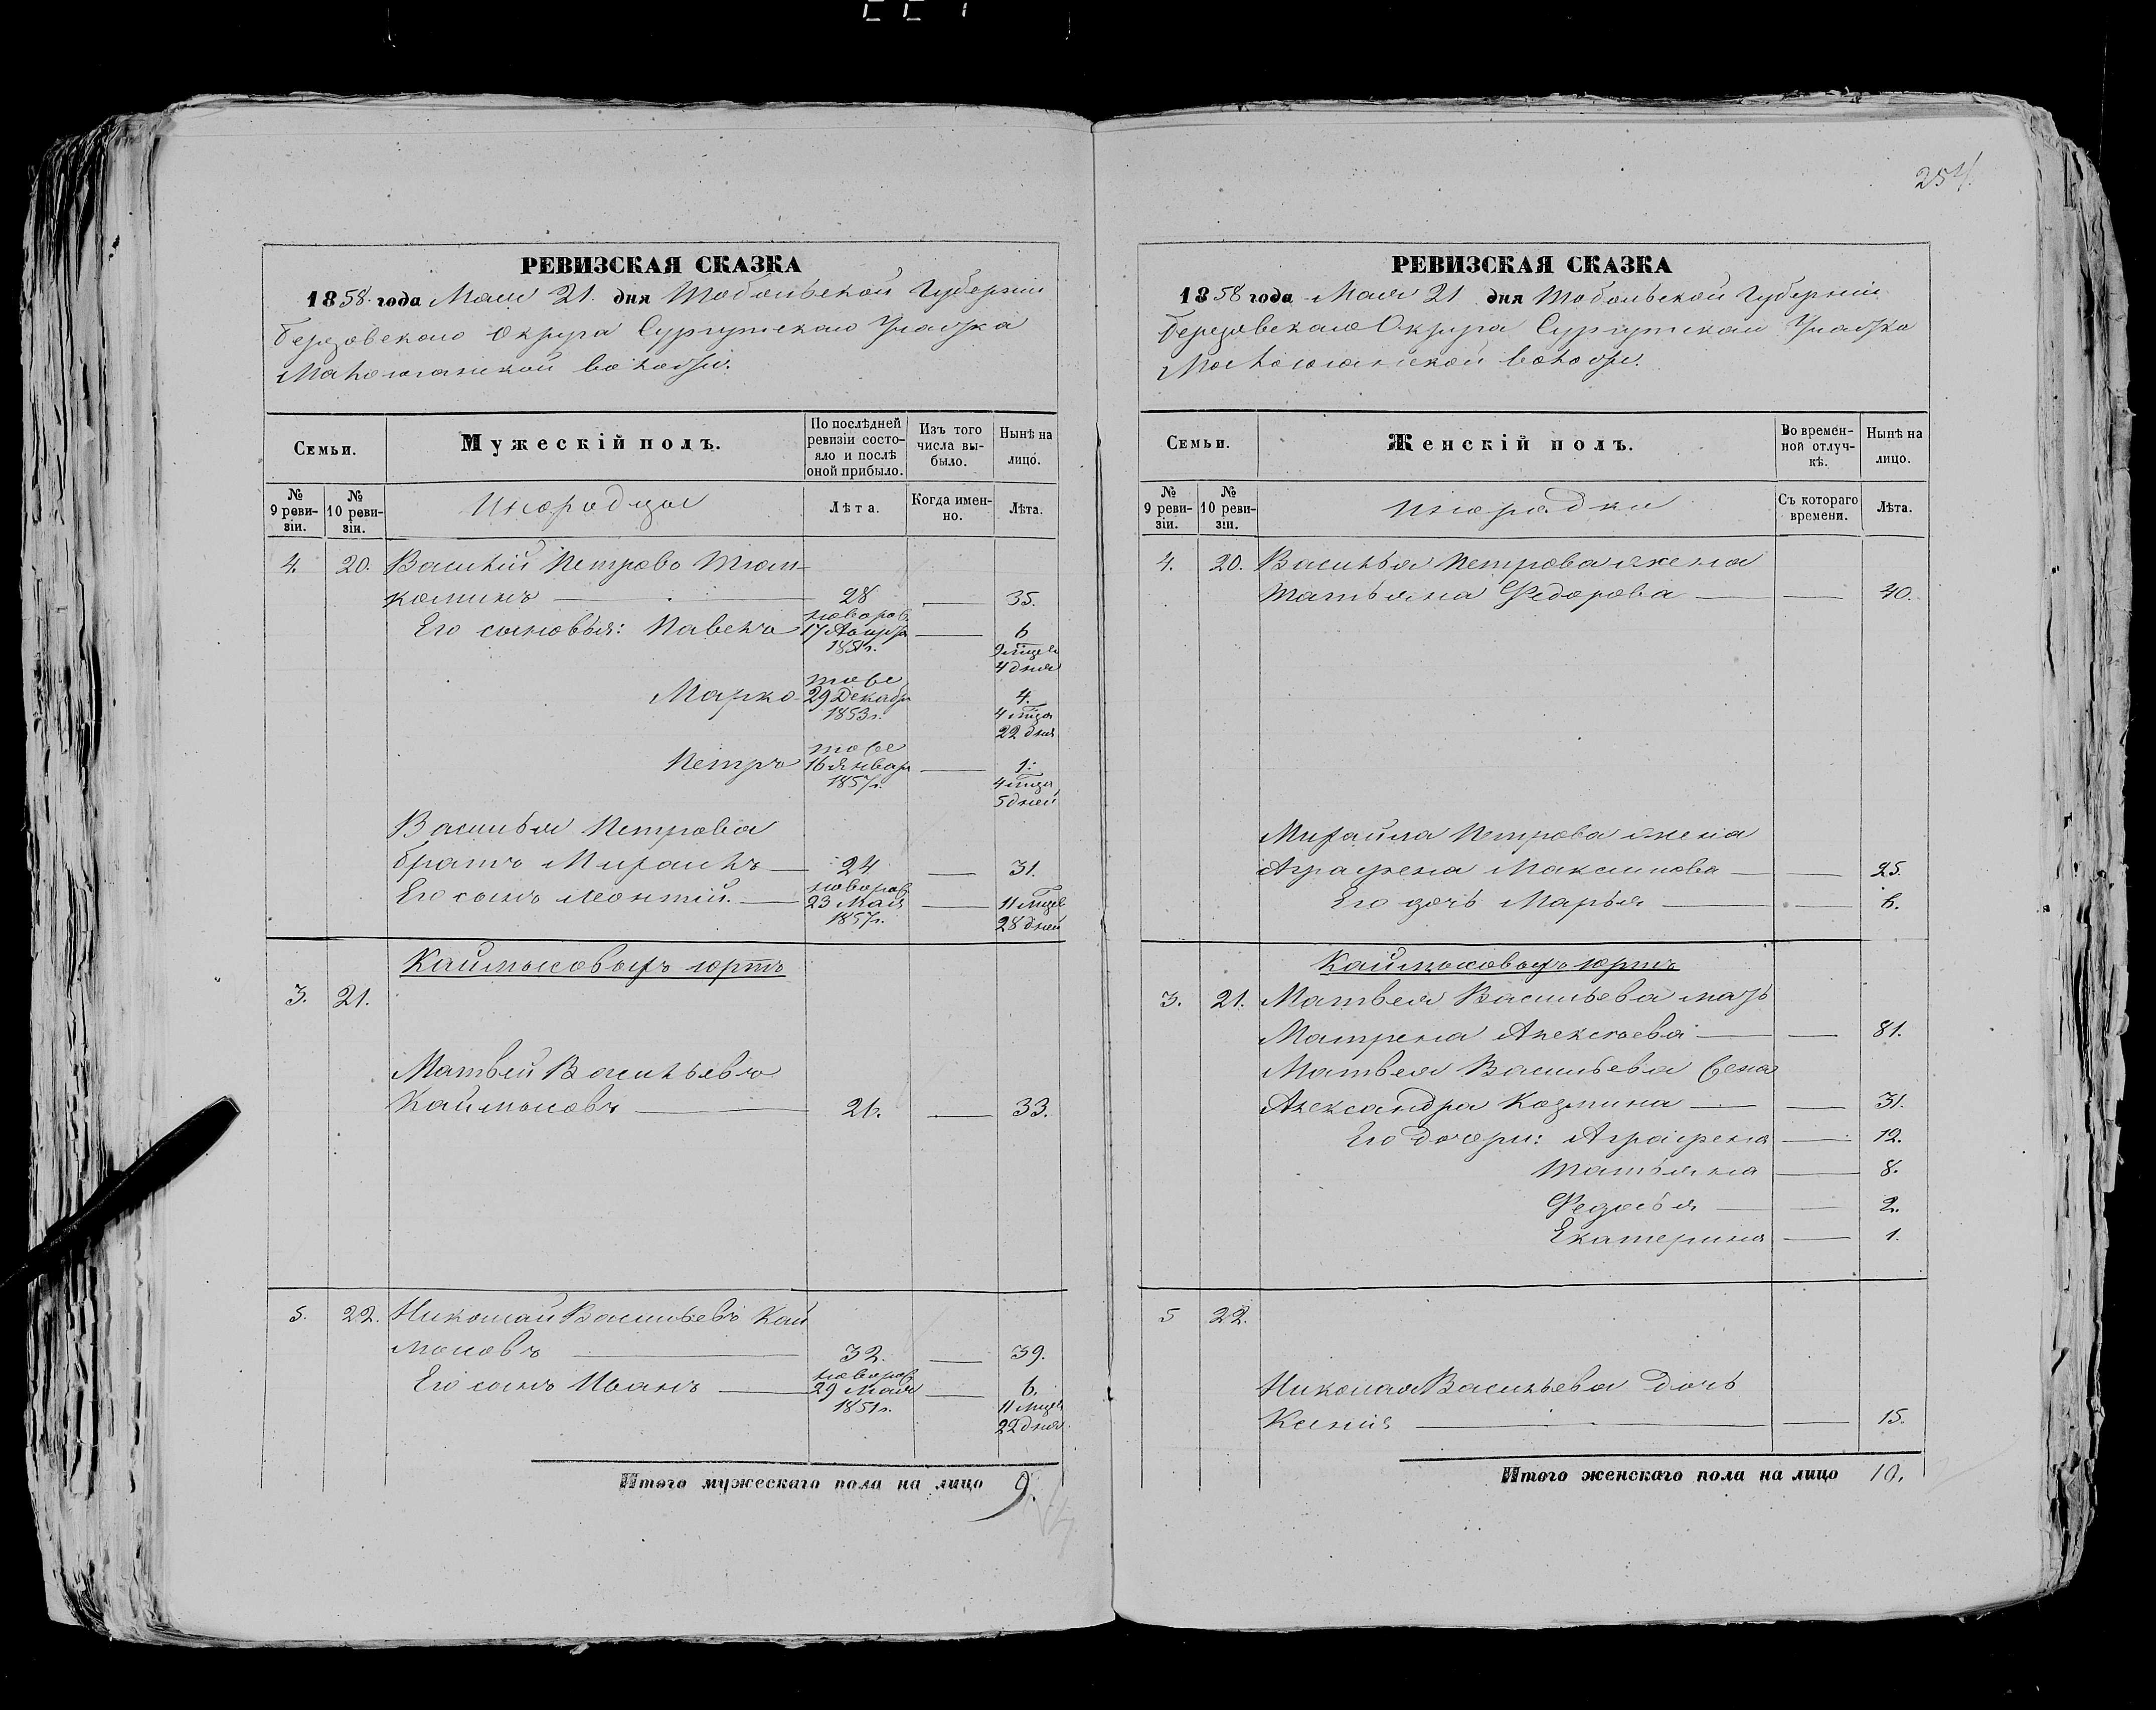 254.
РЕВИЗСКАЯ СКАЗКА
1858 года Мая 21 дня Тобольской Губерніи
Березовскаго Округа Сургутскаго Участка
волости.
Семьи.
Мужескій полъ.
По послѣдней ревизіи состояло и послѣ оной прибыло.
Изъ того числа выбыло.
Нынѣ на лицо.
№ 9 ревизіи.
№ 10 ревизіи.
Инородцы
Лѣта.
Когда именно.
Лѣта.
4. 20. Василій Петровъ
28 — 35.
Его сыновья: Павелъ новорож. 17 — 6
9 мцев
4 дня
Марко тоже 29 Декабр 1853 г. 4.
4 мца
22 дня
Петръ тоже 16 Январ 1857 г. — 1.
4 мца
5 дней
Василья Петрова
братъ Михаилъ — 24 — 31.
Его сынъ Леонтій. — новорож 23 Мая 1857 г. — 11 мцев
28 дней
Каймысовыхъ юртъ
3. 21.
Матвей Васильевъ
Каймысовъ — 26. — 33.
5. 22. Николай Васильевъ Кай
мысовъ — 32. — 39.
Его сынъ Иванъ — новорож 29 Мая 1851 г. — 6.
11 мцев
22 дня
Итого мужескаго пола на лицо 9.
РЕВИЗСКАЯ СКАЗКА
1858 года Мая 21 дня Тобольской Губерніи
Березовскаго Округа Сургутскаго Участка
волости.
Семьи.
Женскій полъ.
Во временной отлучкѣ.
Нынѣ на лицо.
№ 9 ревизіи.
№ 10 ревизіи.
Инородки
Съ котораго времени.
Лѣта.
4. 20. Василья Петрова жена
Татьяна Федорова — — 40.
Михайла Петрова жена
Аграфена Максимова — — 25.
Его дочь Марья — — 6.
Каймысовыхъ юртъ
3. 21. Матвея Васильева мать
Матрена Алексѣева — — 81.
Матвея Васильева жена
Александра Козмина — — 31.
Его дочери: Аграфена — 12.
Татьяна — 8.
Федосья — — 2.
Екатерина — 1.
5 22.
Николая Васильева дочь
Ксенія — — 15.
Итого женскаго пола на лицо 10.